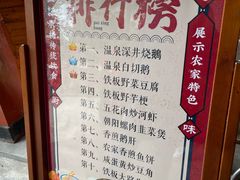 排行榜
第一、温泉深井烧鹅
第二、温泉白切鹅
第三、铁板野菜豆腐
第四、铁板野芋梗
第五、五花肉炒河虾
第六、朝阳螺肉韭菜煲
第七、香煎鹅肝
第八、农家香煎鱼饼
第九、咸蛋黄炒豆角
第十、铁板大
展示农家特色
味
传统饮食